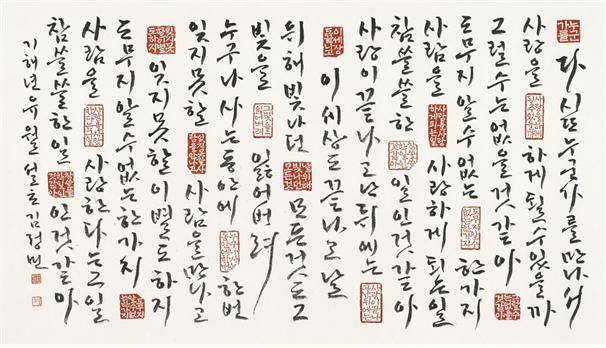 다시또누군가를만나서
사랑을 하게될수있을까
그럴수는없을것같아
도무지알수없는 한가지
사람을 사랑하게되는일
참쓸쓸한 일인것같아
사랑이끝나고난뒤에는
이세상도끝나고날
위해빛나던 모든것도그
빛을 잃어버려
누구나사는동안에 한번
잊지못할 사람을만나고
잊지못할이별도하지
도무지알수없는한가지
사람을 사랑한다는그일
참쓸쓸한일 인것같아
기해년유월